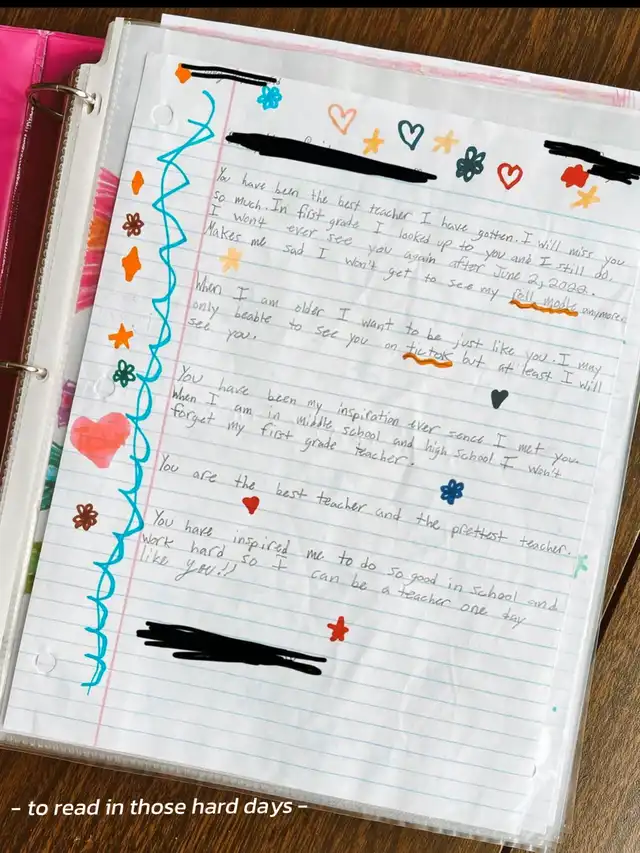 You have been the best teacher I have gotten. I will miss you
so much. In first grade I looked up to you and I still do.
I won't ever see you again after June 2, 2022.
Makes me sad I won't get to see my roll modle anymore.
When I am older I want to be just like you. I may
only beable to see you on tictok but at least I will
see you.
You have been my inspiration ever sence I met you.
When I am in middle school and high school I won't
forget my first grade teacher.
You are the best teacher and the prettest teacher.
You have inspired me to do so good in school and
work hard so I can be a teacher one day
like you!!
- to read in those hard days -